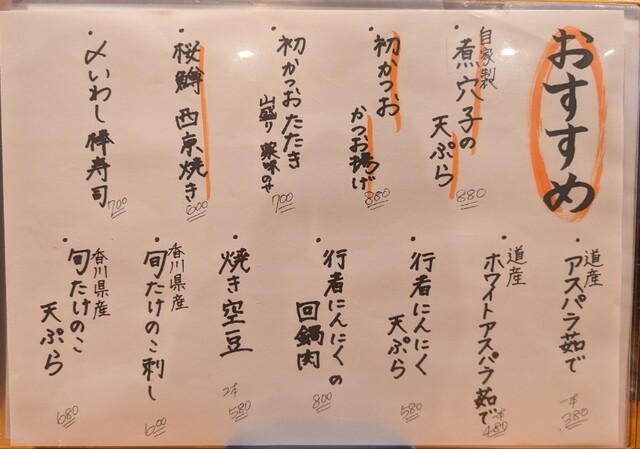 おすすめ
自家製
煮穴子の
天ぷら
880
初かつお
かつお揚げ
880
初かつおたたき
山盛り薬味のせ
700
桜鱒 西京焼き
600
〆いわし棒寿司
700
道産
アスパラ茹で
一本
380
道産
ホワイトアスパラ茹で
一本
480
行者にんにく
天ぷら
580
行者にんにくの
回鍋肉
800
焼き空豆
2本
580
香川県産
旬たけのこ刺し
600
香川県産
旬たけのこ
天ぷら
680